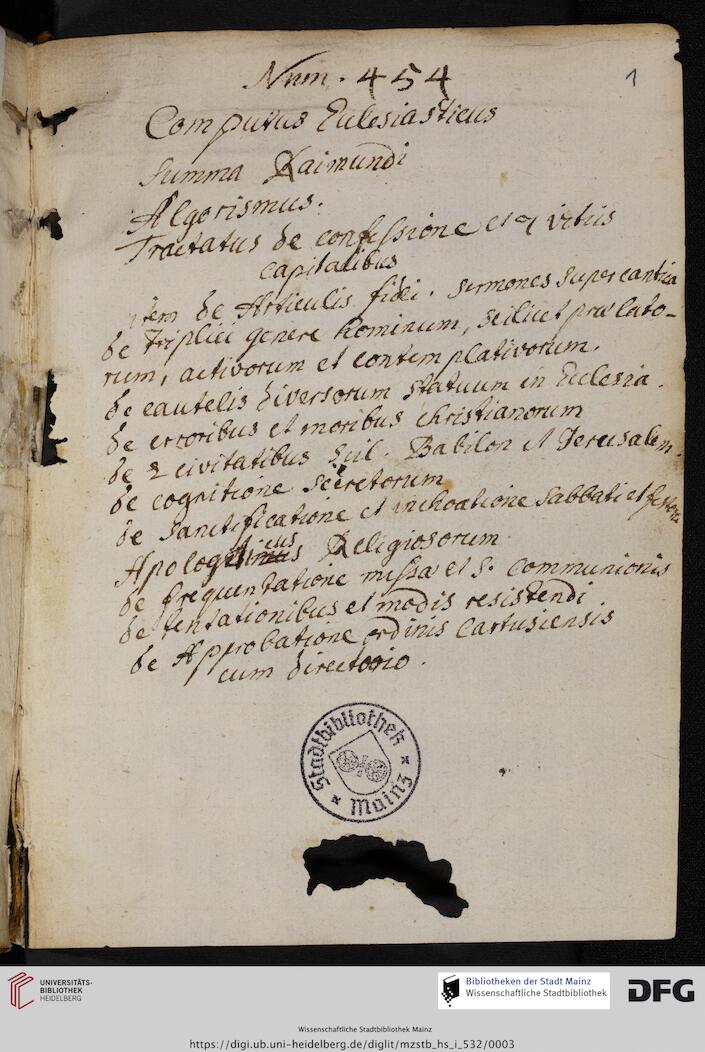 Num. 454
1
Computus Eclesiasticus
Summa Raimundi
Algorismus.
Tractatus de confessione et 7 vitiis
capitalibus
item de Articulis fidei. sermones super cantica
de triplici genere hominum, scilicet prælato-
rum, activorum et contemplativorum.
de cautelis diversorum statuum in Eclesia.
de erroribus et moribus christianorum
de 2 civitatibus scil. Babilon et Jerusalem.
de cognitione secretorum
de sanctificatione et inchoatione sabbati et
Apologeticus Religiosorum
de frequentatione missæ et S. communionis
de tentationibus et modis resistendi
de Approbatione ordinis cartusiensis
cum directorio.
Stadtbibliothek
* Mainz *
UNIVERSITÄTS-
BIBLIOTHEK
HEIDELBERG
Bibliotheken der Stadt Mainz
Wissenschaftliche Stadtbibliothek
DFG
Wissenschaftliche Stadtbibliothek Mainz
https://digi.ub.uni-heidelberg.de/diglit/mzstb_hs_i_532/0003